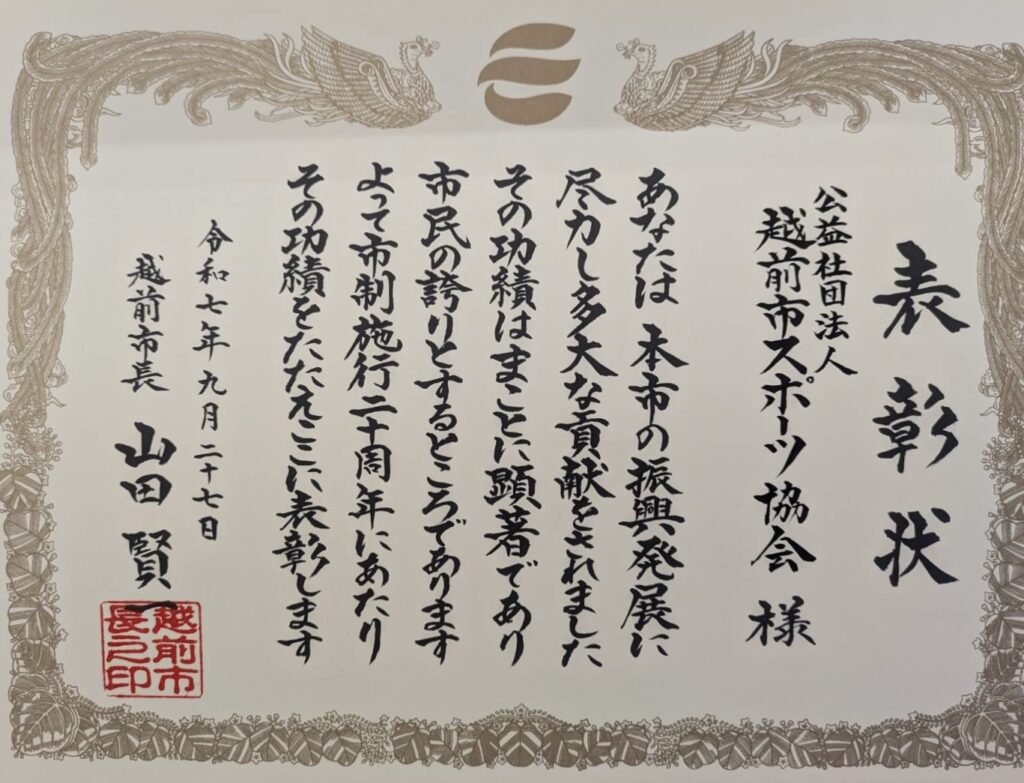 表彰状
公益社団法人
越前市スポーツ協会 様
あなたは 本市の振興発展に
尽力し多大な貢献をされました
その功績はまことに顕著であり
市民の誇りとするところであります
よって市制施行二十周年にあたり
その功績をたたえここに表彰します
令和七年九月二十七日
越前市長 山田 賢一
越前市長之印